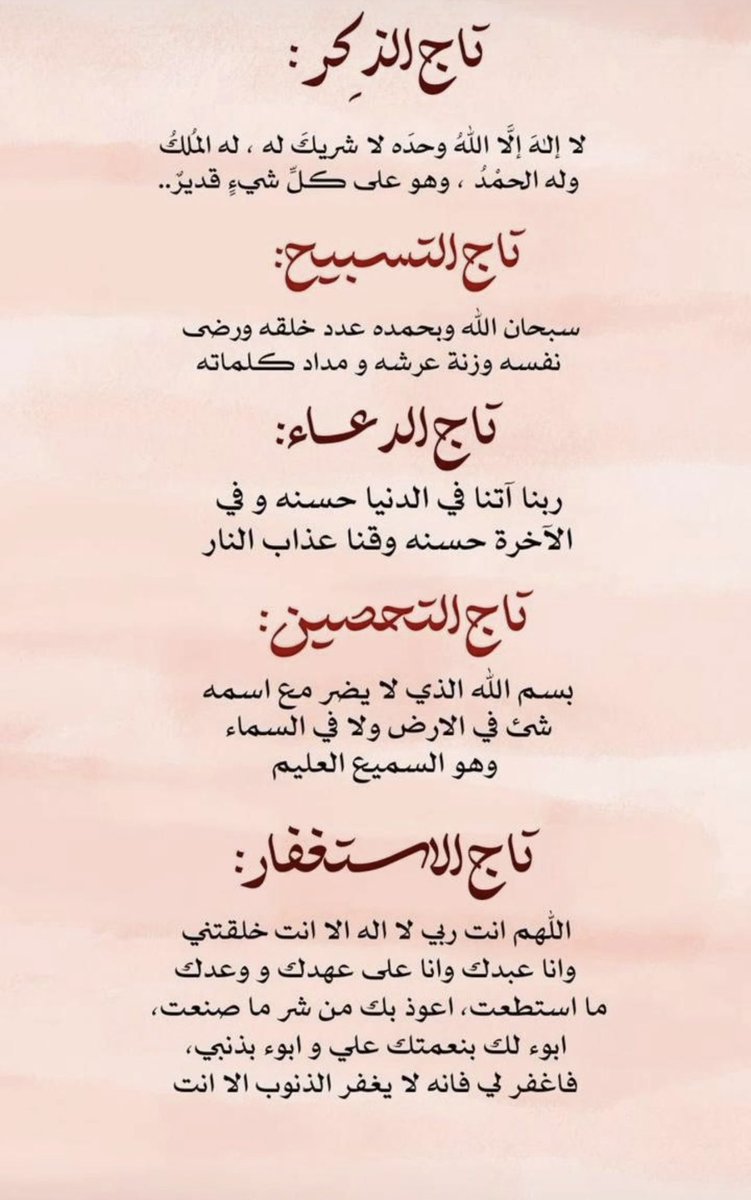 تاج الذكِر :
لا إلهَ إلَّا اللهُ وحدَه لا شريكَ له ، له المُلكُ
وله الحمْدُ ، وهو على كلِّ شيءٍ قديرٌ..
تاج التسبيح:
سبحان الله وبحمده عدد خلقه ورضى
نفسه وزنة عرشه و مداد كلماته
تاج الدعاء:
ربنا آتنا في الدنيا حسنه و في
الآخرة حسنه وقنا عذاب النار
تاج التحصين:
بسم الله الذي لا يضر مع اسمه
شئ في الارض ولا في السماء
وهو السميع العليم
تاج الاستغفار:
اللهم انت ربي لا اله الا انت خلقتني
وانا عبدك وانا على عهدك و وعدك
ما استطعت، اعوذ بك من شر ما صنعت،
ابوء لك بنعمتك علي و ابوء بذنبي،
فاغفر لي فانه لا يغفر الذنوب الا انت